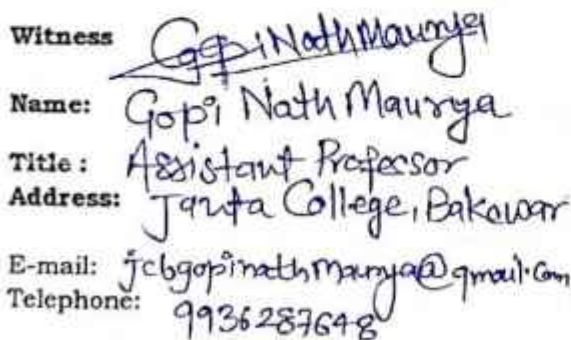 Witness GopiNathMaurya
Name: Gopi Nath Maurya
Title : Assistant Professor
Address: Janta College, Bakewar
E-mail: jcbgopinathmaurya@gmail.com
Telephone: 9936287648